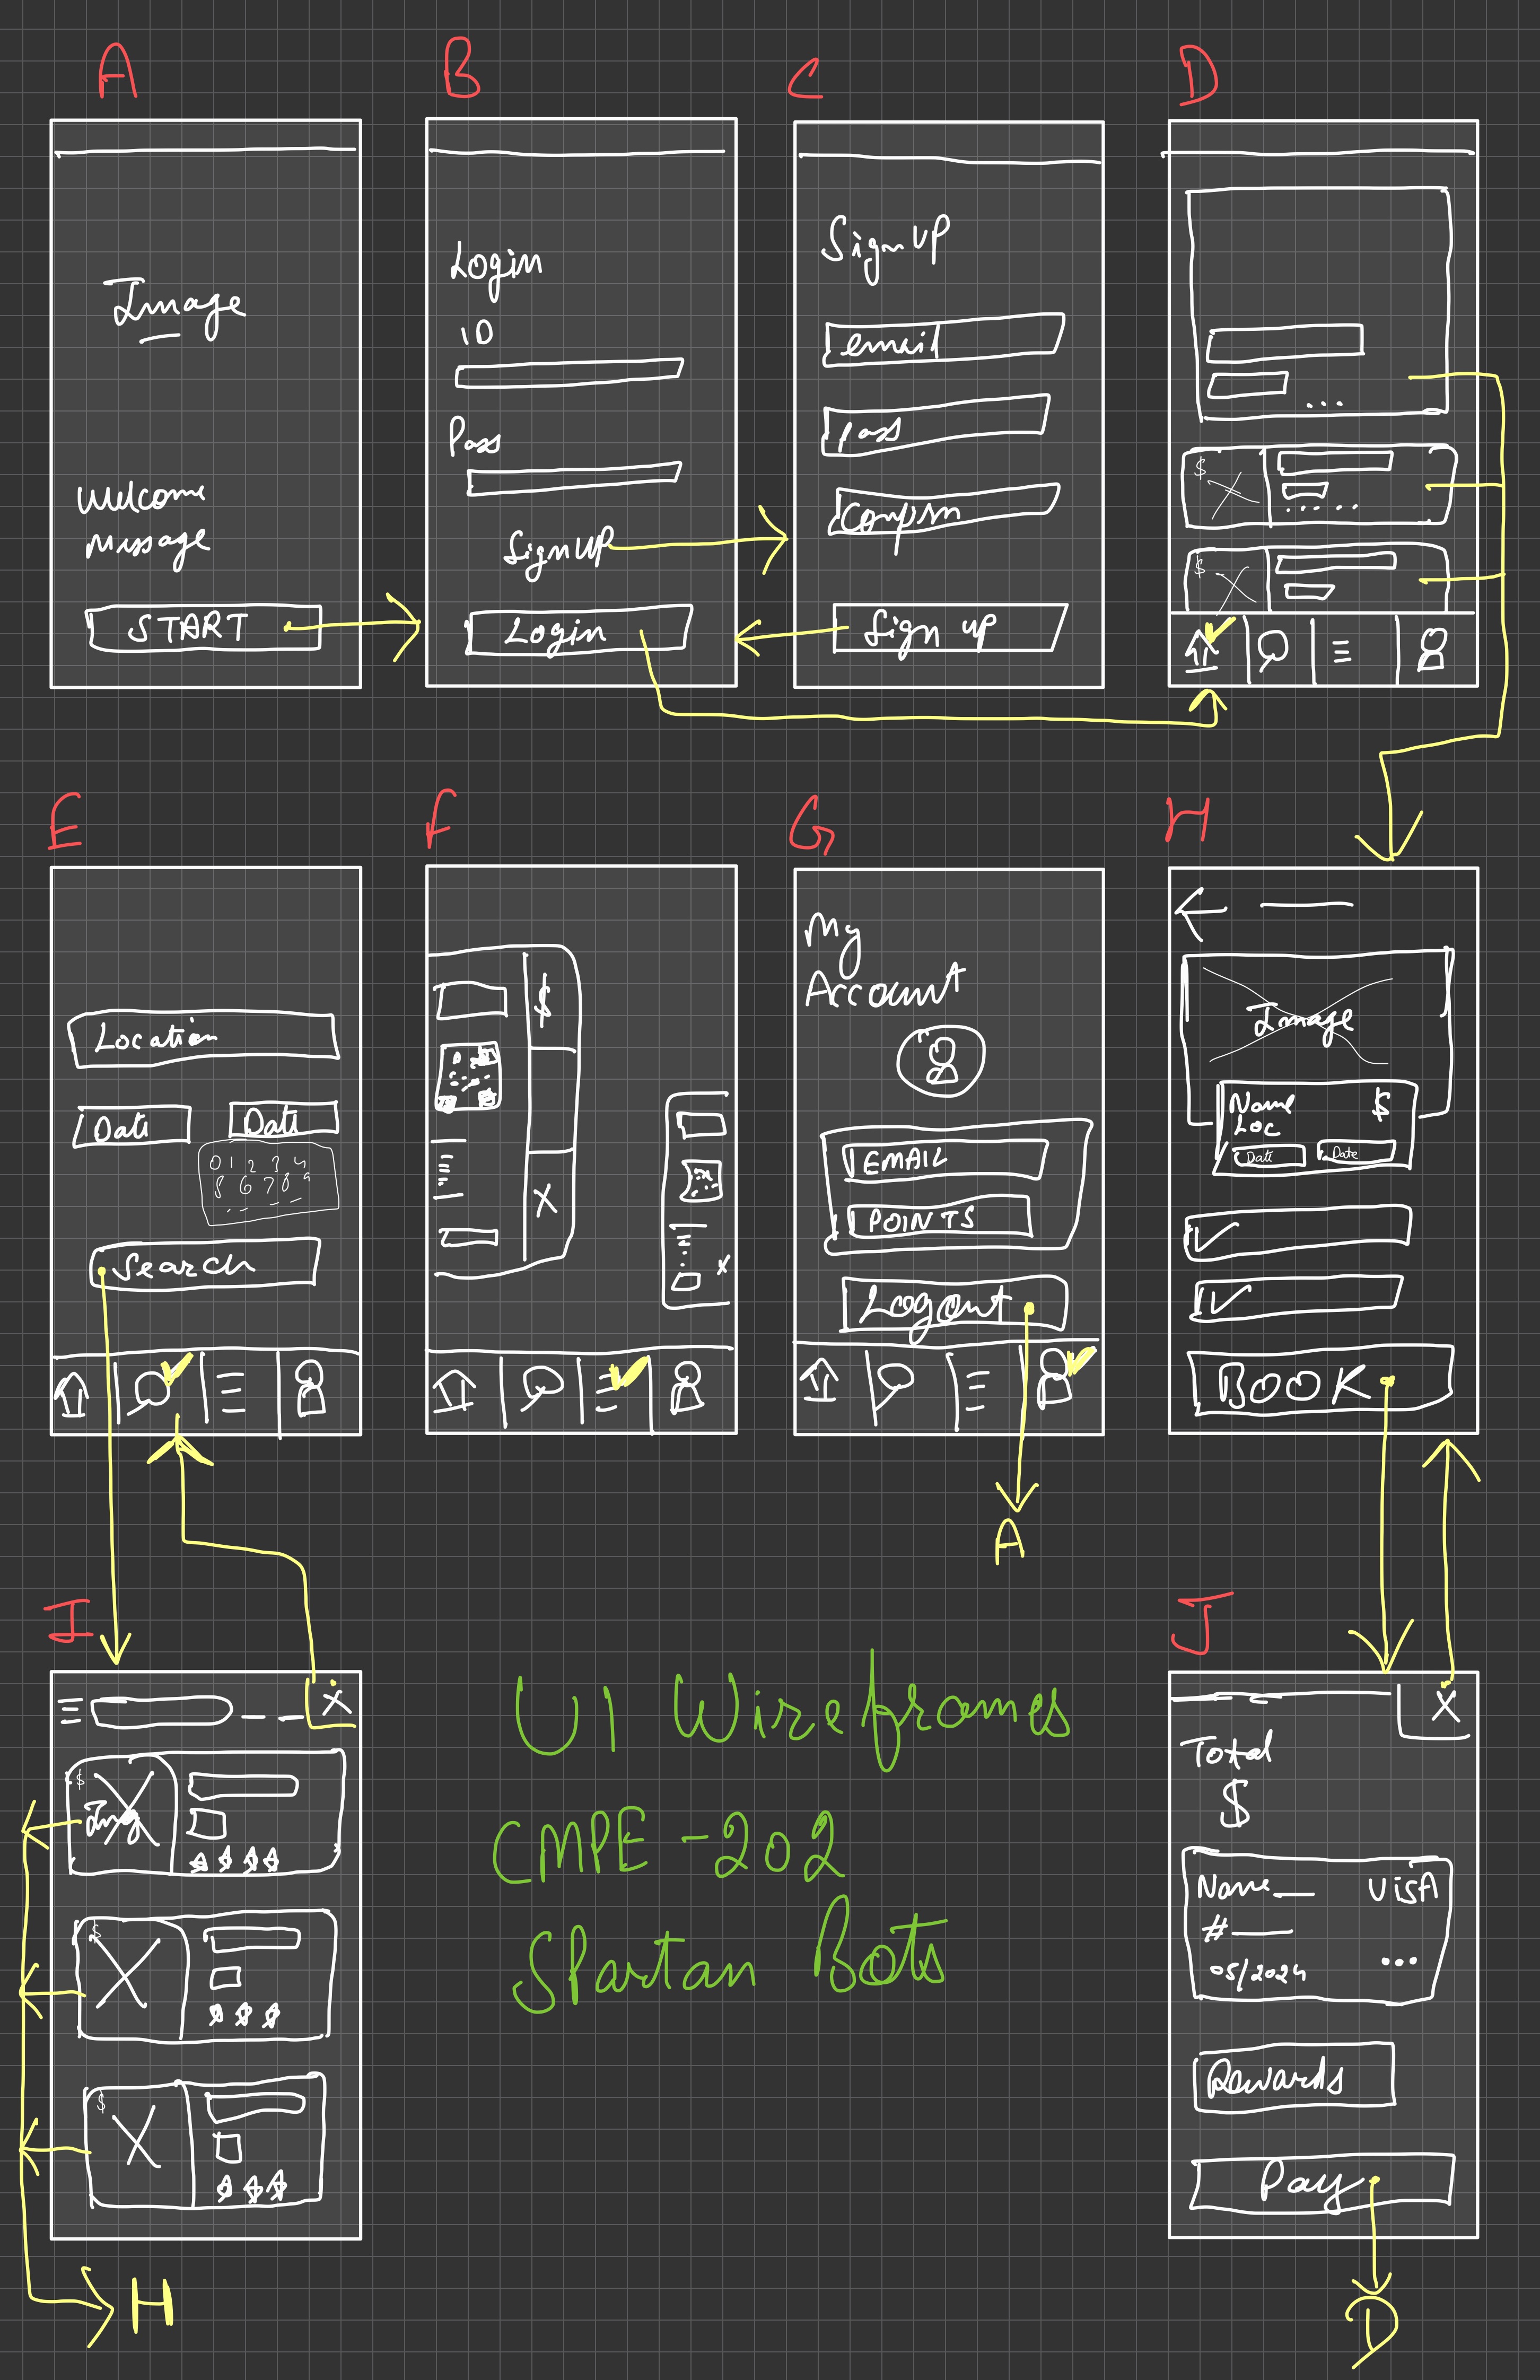 A
B
C
D
Image
Welcome
Message
START
Login
ID
Pass
SignUP
Login
SignUP
email
pass
Confirm
Sign up
...
$
.....
$
E
F
G
H
Location
Date
Date
0 1 2 3 4
5 6 7 8 9
Search
$
X
x
My
Account
EMAIL
POINTS
Logout
A
Image
Name $
Loc
Date Date
BOOK
I
J
X
$
Img
$
$
H
UI Wireframes
CMPE-202
Spartan Bots
X
Total
$
Name VISA
#
05/2024 ...
Rewards
Pay
D